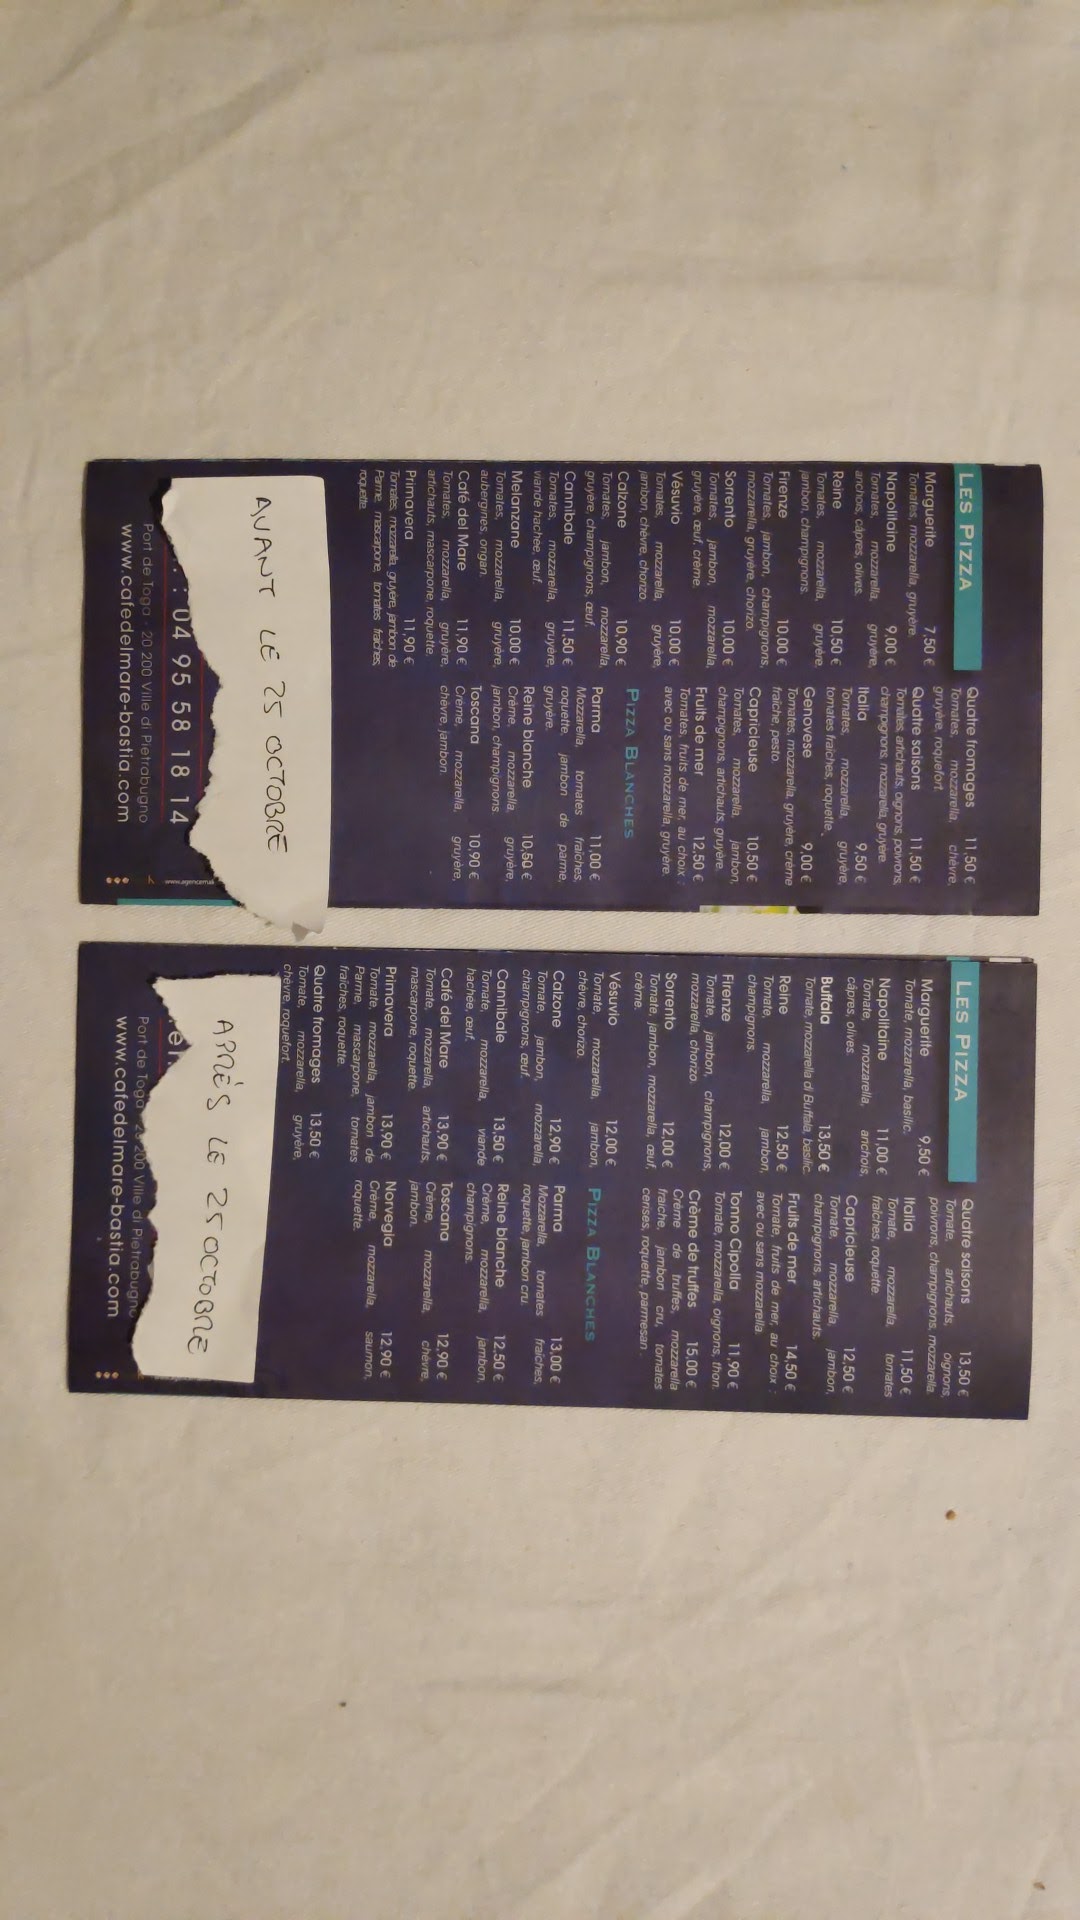 LES PIZZA
Marguerite 7,50 €
Tomates, mozzarella, gruyère.
Napolitaine 9,00 €
Tomates, mozzarella, gruyère,
anchois, câpres, olives.
Reine 10,50 €
Tomates, mozzarella, gruyère,
jambon, champignons.
Firenze 10,00 €
Tomates, jambon, champignons,
mozzarella, gruyère, chorizo.
Sorrento 10,00 €
Tomates, jambon, mozzarella,
gruyère, œuf, crème.
Vésuvio 10,00 €
Tomates, mozzarella, gruyère,
jambon, chèvre, chorizo.
Calzone 10,90 €
Tomates, jambon, mozzarella,
gruyère, champignons, œuf.
Cannibale 11,50 €
Tomates, mozzarella, gruyère,
viande hachée, œuf.
Melanzane 10,00 €
Tomates, mozzarella, gruyère,
aubergines, origan.
Café del Mare 11,90 €
Tomates, mozzarella, gruyère,
artichauts, mascarpone, roquette.
Primavera 11,90 €
Tomates, mozzarella, gruyère, jambon de
Parme, mascarpone, tomates fraîches,
roquette.
Quatre fromages 11,50 €
Tomates, mozzarella, chèvre,
gruyère, roquefort.
Quatre saisons 11,50 €
Tomates, artichauts, oignons, poivrons,
champignons, mozzarella, gruyère.
Italia 9,50 €
Tomates, mozzarella, gruyère,
tomates fraîches, roquette.
Genovese 9,00 €
Tomates, mozzarella, gruyère, crème
fraîche, pesto.
Capricieuse 10,50 €
Tomates, mozzarella, jambon,
champignons, artichauts, gruyère.
Fruits de mer 12,50 €
Tomates, fruits de mer, au choix :
avec ou sans mozzarella, gruyère.
PIZZA BLANCHES
Parma 11,00 €
Mozzarella, tomates fraîches,
roquette, jambon de parme,
gruyère.
Reine blanche 10,50 €
Crème, mozzarella, gruyère,
jambon, champignons.
Toscana 10,90 €
Crème, mozzarella, gruyère,
chèvre, jambon.
AVANT LE 25 OCTOBRE
: 04 95 58 18 14
Port de Toga - 20 200 Ville di Pietrabugno
www.cafedelmare-bastia.com
LES PIZZA
Marguerite 9,50 €
Tomate, mozzarella, basilic.
Napolitaine 11,00 €
Tomate, mozzarella, anchois,
câpres, olives.
Buffala 13,50 €
Tomate, mozzarella di Buffala, basilic.
Reine 12,50 €
Tomate, mozzarella, jambon,
champignons.
Firenze 12,00 €
Tomate, jambon, champignons,
mozzarella, chorizo.
Sorrento 12,00 €
Tomate, jambon, mozzarella, œuf,
crème.
Vésuvio 12,00 €
Tomate, mozzarella, jambon,
chèvre, chorizo.
Calzone 12,90 €
Tomate, jambon, mozzarella,
champignons, œuf.
Cannibale 13,50 €
Tomate, mozzarella, viande
hachée, œuf.
Café del Mare 13,90 €
Tomate, mozzarella, artichauts,
mascarpone, roquette.
Primavera 13,90 €
Tomate, mozzarella, jambon de
Parme, mascarpone, tomates
fraîches, roquette.
Quatre fromages 13,50 €
Tomate, mozzarella, gruyère,
chèvre, roquefort.
Quatre saisons 13,50 €
Tomate, artichauts, oignons,
poivrons, champignons, mozzarella.
Italia 11,50 €
Tomate, mozzarella, tomates
fraîches, roquette.
Capricieuse 12,50 €
Tomate, mozzarella, jambon,
champignons, artichauts.
Fruits de mer 14,50 €
Tomate, fruits de mer, au choix :
avec ou sans mozzarella.
Tonno Cipolla 11,90 €
Tomate, mozzarella, oignons, thon.
Crème de truffes 15,00 €
Crème de truffes, mozzarella
fraîche, jambon cru, tomates
cerises, roquette, parmesan .
PIZZA BLANCHES
Parma 13,00 €
Mozzarella, tomates fraîches,
roquette, jambon cru.
Reine blanche 12,50 €
Crème, mozzarella, jambon,
champignons.
Toscana 12,90 €
Crème, mozzarella, chèvre,
jambon.
Norvegia 12,90 €
Crème, mozzarella, saumon,
roquette.
APRÈS LE 25 OCTOBRE
Port de Toga - 20 200 Ville di Pietrabugno
www.cafedelmare-bastia.com